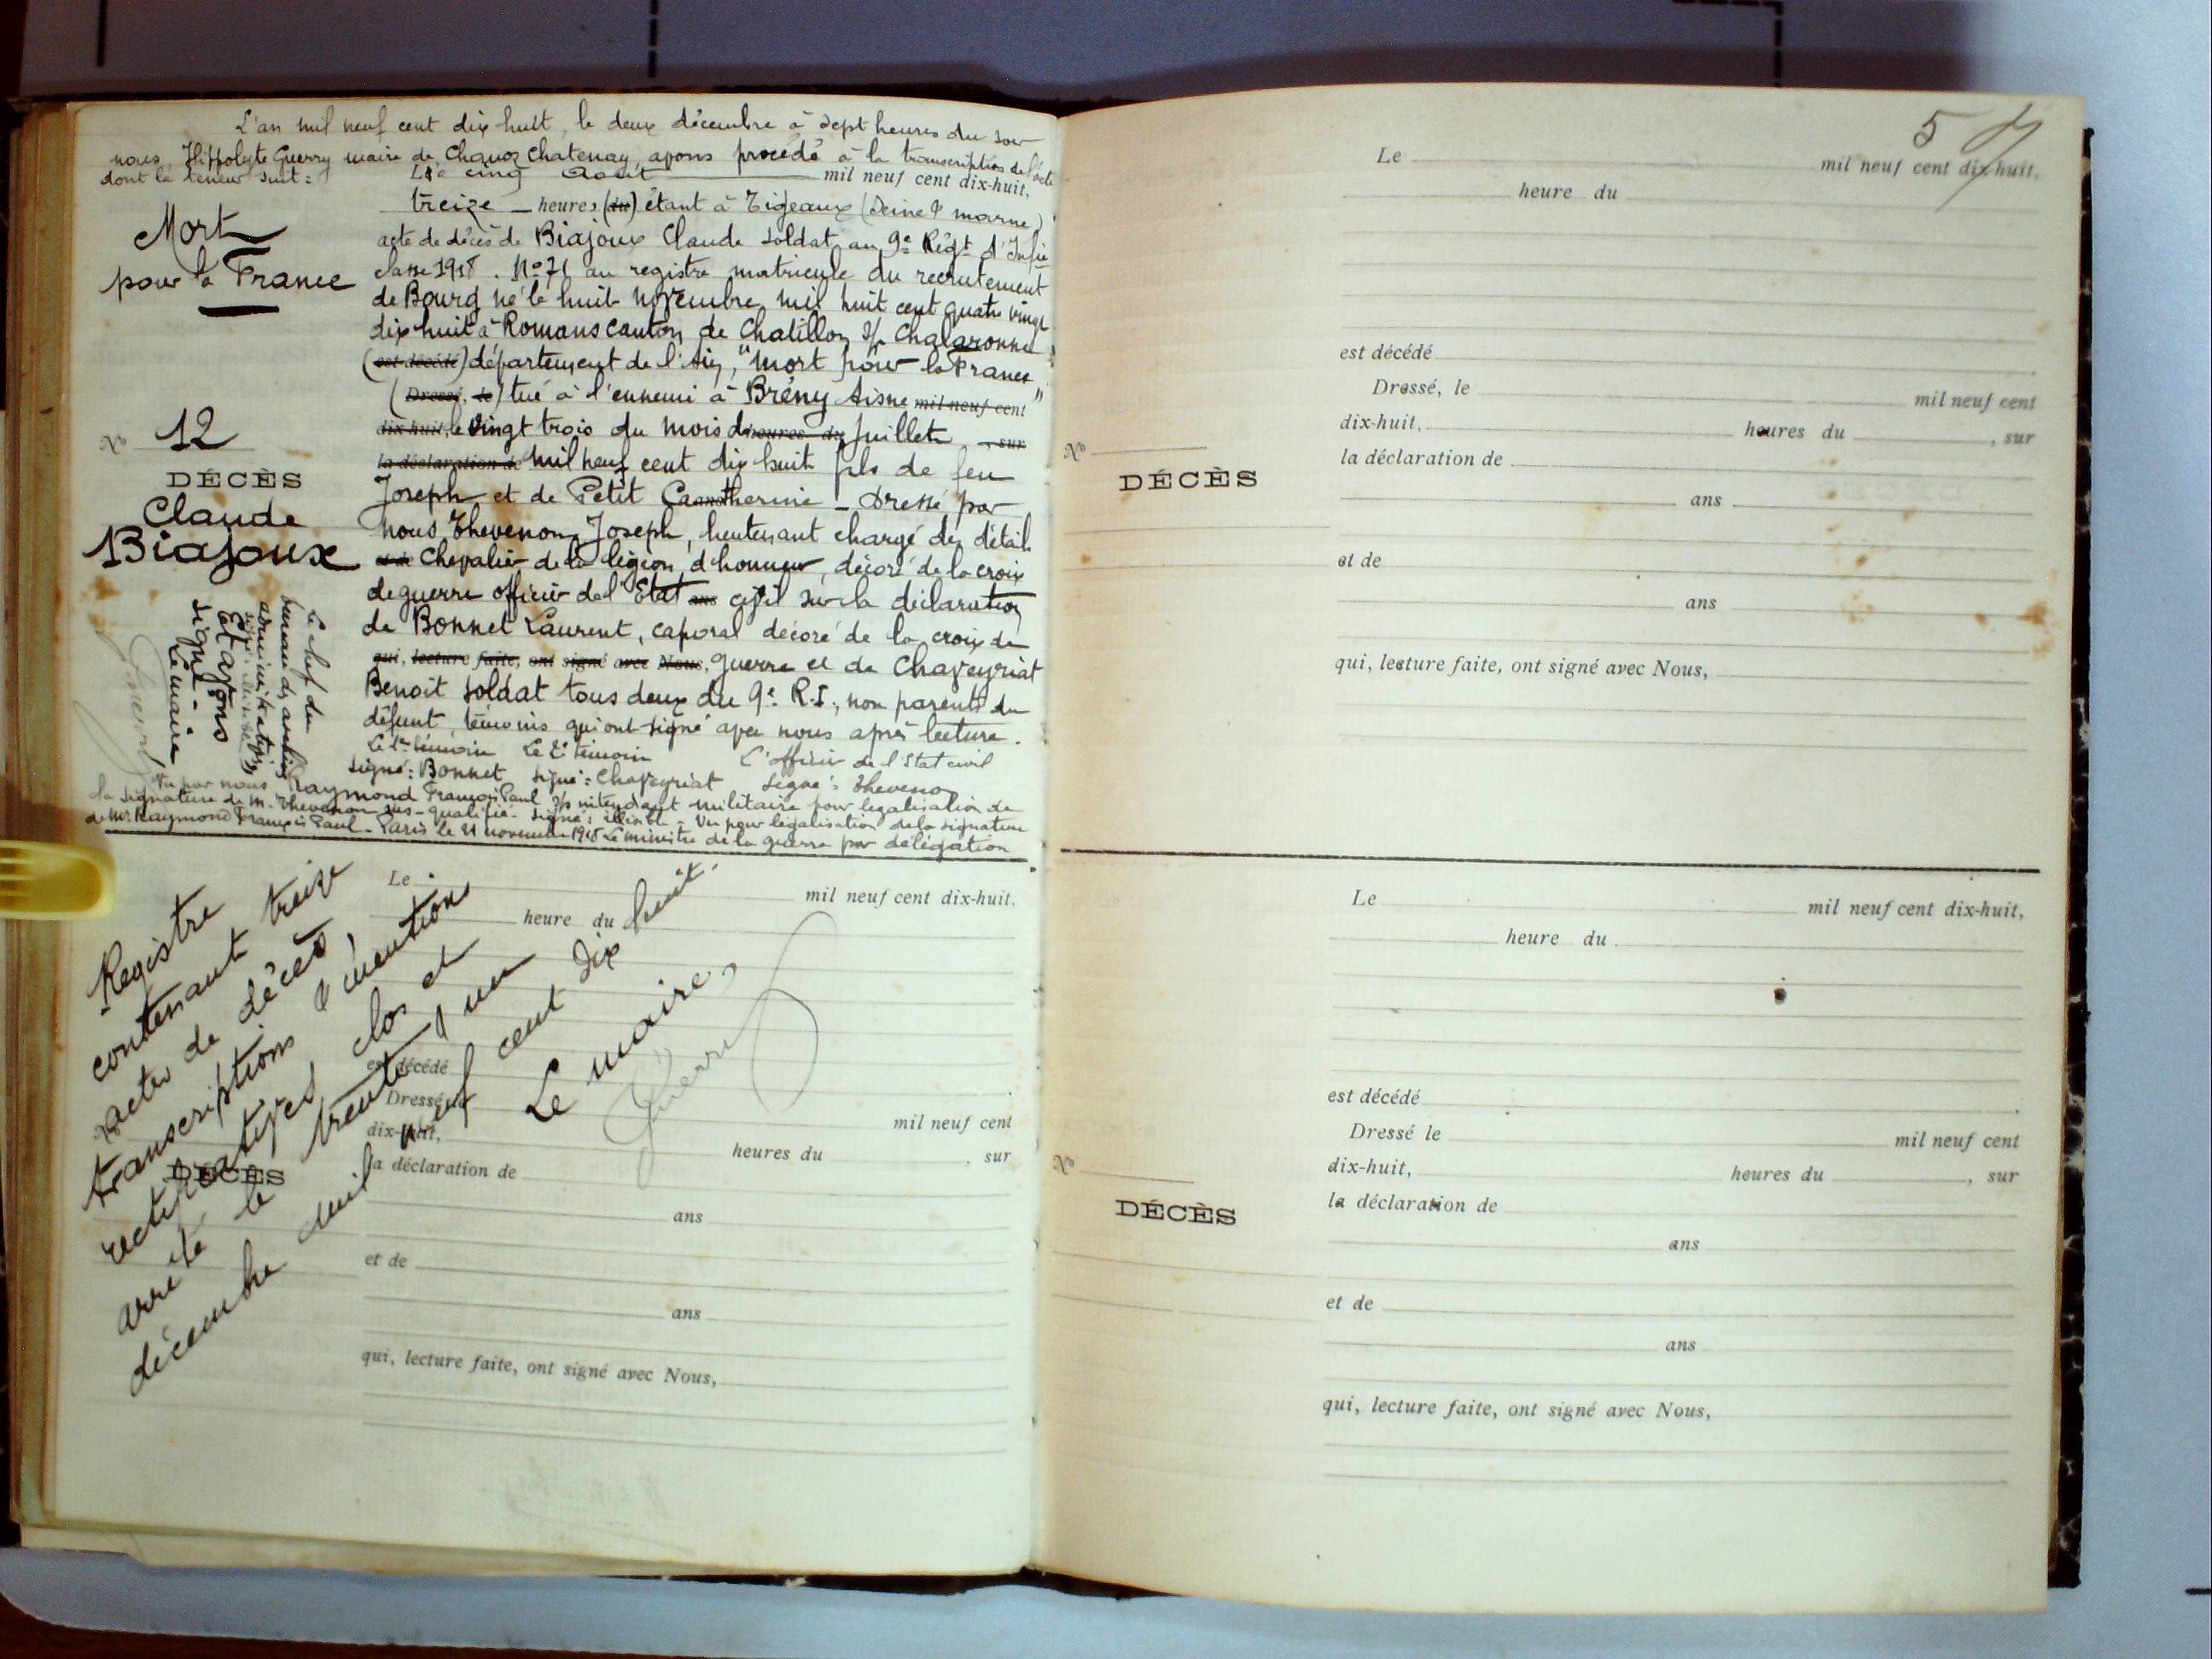 L'an mil neuf cent dix huit, le deux décembre à sept heures du soir
nous, Hippolyte Guerry maire de Chanoz Chatenay, avons procédé à la transcription de l'acte
dont la teneur suit :
Le cinq Août mil neuf cent dix-huit,
treize heures (du) étant à Tigeaux (Seine & marne)
acte de décès de Biajoux Claude soldat au 9e Régt d'Infie
classe 1918. No 71 au registre matricule du recrutement
de Bourg né le huit novembre mil huit cent quatre vingt
dix huit à Romans canton de Chatillon s/ Chalaronne
(est décédé) département de l'Ain, "mort pour la France"
(Dressé, le) tué à l'ennemi à Brény Aisne mil neuf cent
dix-huit, le vingt trois du mois de heures du juillet , sur
la déclaration de mil neuf cent dix huit fils de feu
Joseph et de Petit Catherine - Dressé par
nous Thevenon Joseph, lieutenant chargé des détails
et de Chevalier de la légion d'honneur, décoré de la croix
de guerre officier de l'Etat ans civil sur la déclaration
de Bonnet Laurent, caporal décoré de la croix de
qui, lecture faite, ont signé avec Nous, guerre et de Chaveyriat
Benoit soldat tous deux du 9e R.I., non parents du
défunt, témoins qui ont signé avec nous après lecture.
Le 1er témoin Le 2e témoin L'officier de l'Etat civil
signé : Bonnet signé : Chaveyriat signé : Thevenon
Vu par nous Raymond François Paul s/s intendant militaire pour légalisation de
la signature de M. Thevenon sus-qualifié - signé : illisible - Vu pour légalisation de la signature
de Mr Raymond François Paul - Paris le 21 novembre 1918 Le ministre de la guerre par délégation
Le chef du
bureau des archives
administratives
signé -
Le maire
Guerry
Mort
pour la France
No 12
DÉCÈS
Claude
Biajoux
Le mil neuf cent dix-huit,
heure du
est décédé
Dressé, le mil neuf cent
dix-huit, heures du , sur
la déclaration de
ans
et de
ans
qui, lecture faite, ont signé avec Nous,
DÉCÈS
Registre
contenant treize
actes de décès,
transcriptions & mention
rectificatives, clos et
arrêté le trente & un
décembre mil neuf cent dix huit.
Le maire,
Guerry
57
Le mil neuf cent dix-huit,
heure du
est décédé
Dressé, le mil neuf cent
dix-huit, heures du , sur
No
DÉCÈS
la déclaration de
ans
et de
ans
qui, lecture faite, ont signé avec Nous,
Le mil neuf cent dix-huit,
heure du
est décédé
Dressé le mil neuf cent
dix-huit, heures du , sur
No
DÉCÈS
la déclaration de
ans
et de
ans
qui, lecture faite, ont signé avec Nous,